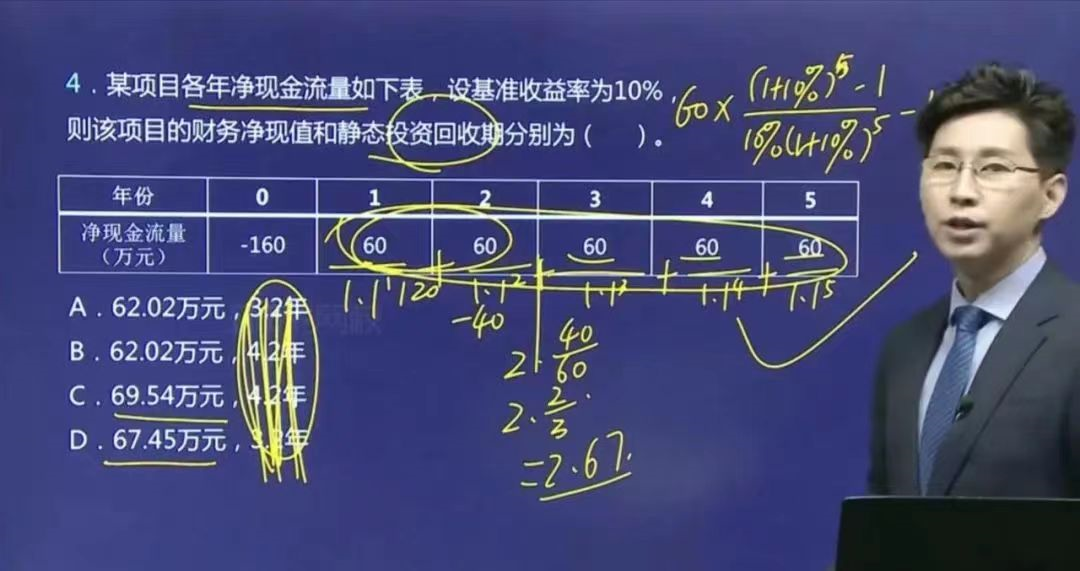 4．某项目各年净现金流量如下表，设基准收益率为10%，
则该项目的财务净现值和静态投资回收期分别为（ ）。
60×((1+10%)^5-1)/(10%(1+10%)^5)-1
年份 0 1 2 3 4 5
净现金流量
（万元） -160 60 60 60 60 60
1.1^1 120 + 1.1^2 + 1.1^3 + 1.1^4 + 1.1^5
-40
A．62.02万元，3.2年
B．62.02万元，4.2年
C．69.54万元，4.2年
D．67.45万元，3.2年
2.40/60
2.2/3
=2.67.